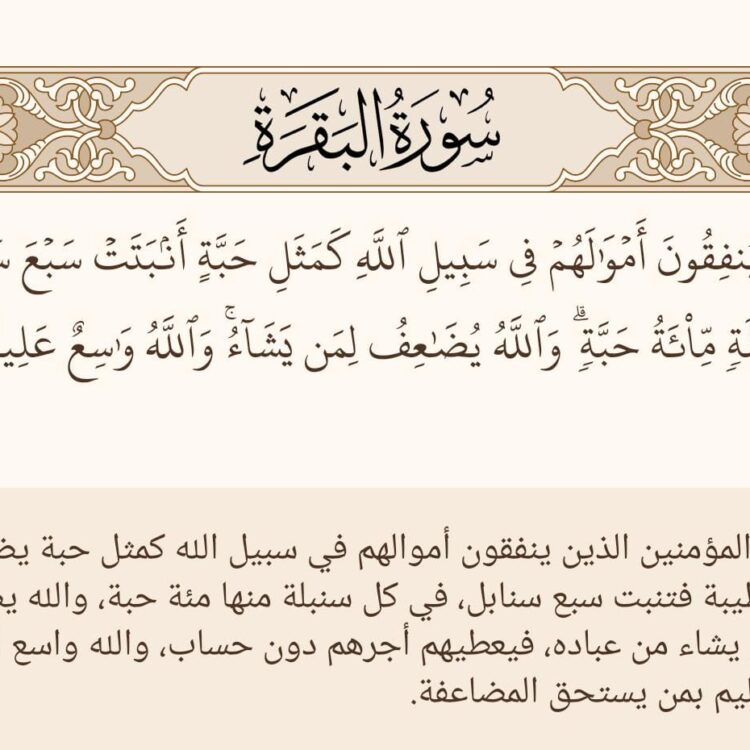 سُورَةُ البَقَرَةِ
أَمۡوَٰلَهُمۡ فِي سَبِيلِ ٱللَّهِ كَمَثَلِ حَبَّةٍ أَنۢبَتَتۡ سَبۡعَ
مِّاْئَةُ حَبَّةٖۗ وَٱللَّهُ يُضَٰعِفُ لِمَن يَشَآءُۚ وَٱللَّهُ وَٰسِعٌ
المؤمنين الذين ينفقون أموالهم في سبيل الله كمثل حبة
فتنبت سبع سنابل، في كل سنبلة منها مئة حبة، والله
يشاء من عباده، فيعطيهم أجرهم دون حساب، والله واسع
بمن يستحق المضاعفة.